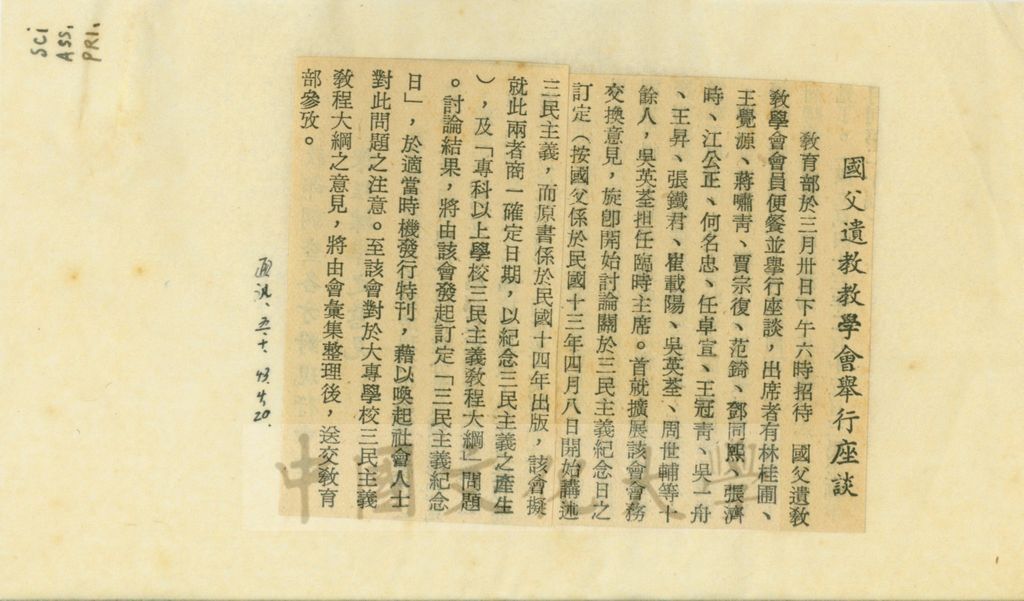 國父遺教教學會舉行座談
教育部於三月卅日下午六時招待　國父遺教
教學會會員便餐並舉行座談，出席者有林桂圃、
王覺源、蔣嘯青、賈宗復、范錡、鄧同熙、張濟
時、江公正、何名忠、任卓宣、王冠青、吳一舟
、王昇、張鐵君、崔載陽、吳英荃、周世輔等十
餘人，吳英荃担任臨時主席。首就擴展該會會務
交換意見，旋卽開始討論關於三民主義紀念日之
訂定（按國父係於民國十三年四月八日開始講述
三民主義，而原書係於民國十四年出版，該會擬
就此兩者商一確定日期，以紀念三民主義之產生
），及「專科以上學校三民主義敎程大綱」問題
。討論結果，將由該會發起訂定「三民主義紀念
日」，於適當時機發行特刊，藉以喚起社會人士
對此問題之注意。至該會對於大專學校三民主義
敎程大綱之意見，將由會彙集整理後，送交敎育
部參攷。
五十、
20.
SCI
ASS.
PRI.
中國文化大學